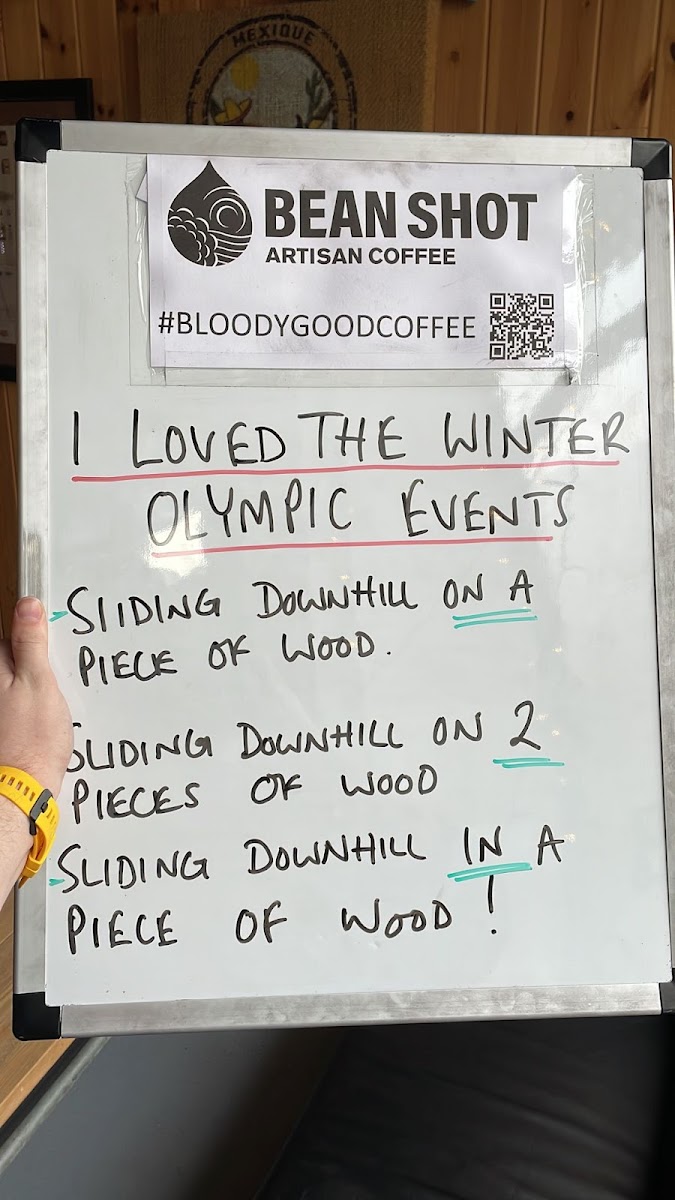 MEXIQUE
BEAN SHOT
ARTISAN COFFEE
#BLOODYGOODCOFFEE
I LOVED THE WINTER
OLYMPIC EVENTS
SLIDING DOWNHILL ON A
PIECE OF WOOD.
SLIDING DOWNHILL ON 2
PIECES OF WOOD
SLIDING DOWNHILL IN A
PIECE OF WOOD !